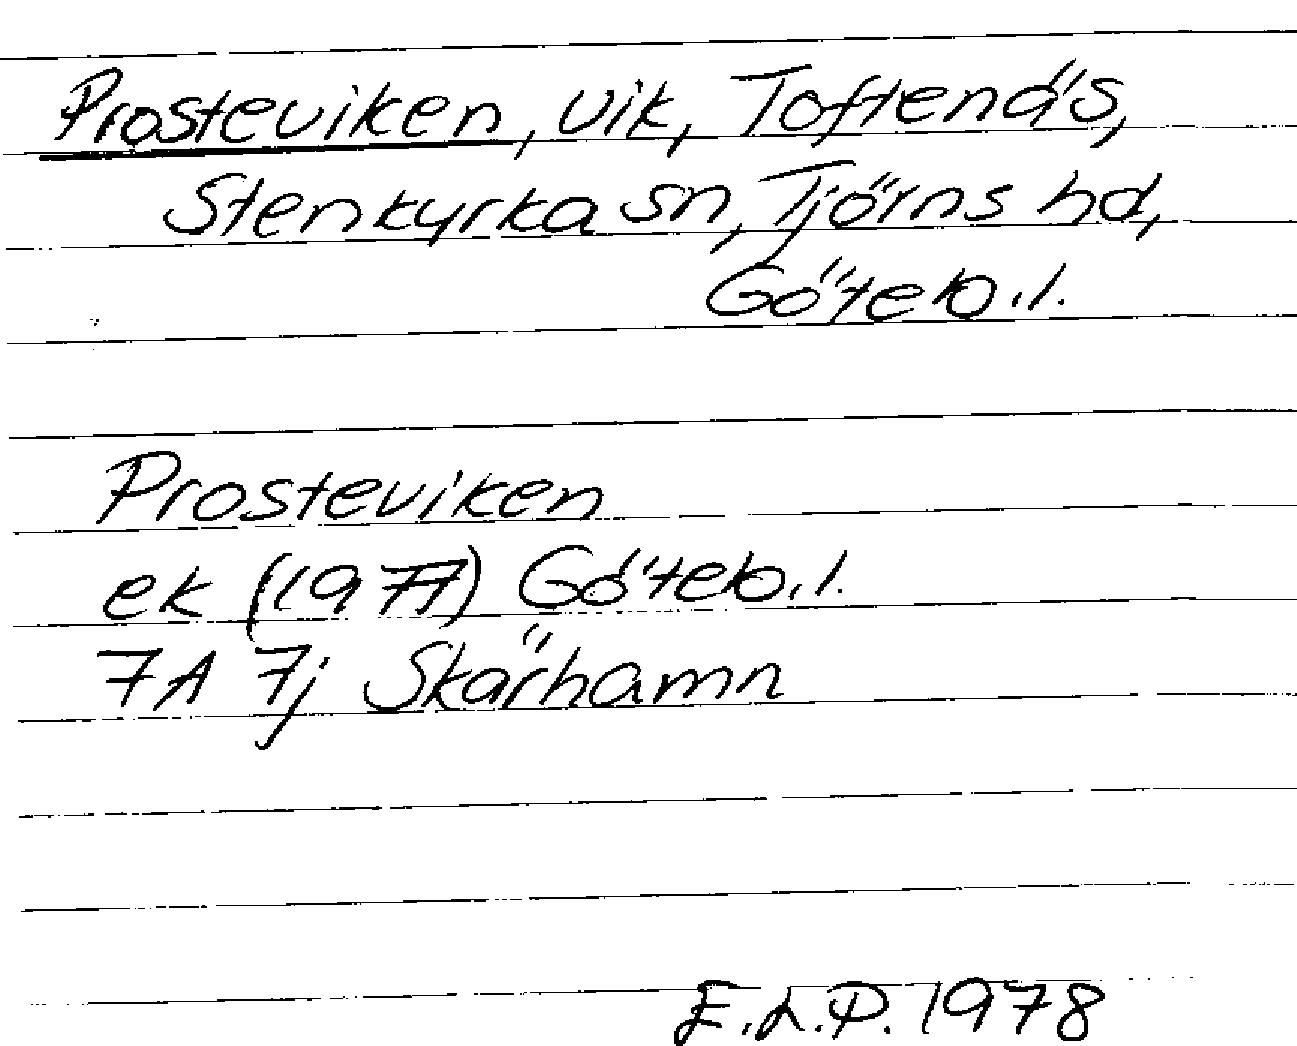 Prosteviken, vik, Toftenäs,
Stenkyrka sn, Tjörns hd,
Göteb.l.
Prosteviken
ek (1977) Göteb.l.
7A 7j Skärhamn
E.L.P. 1978